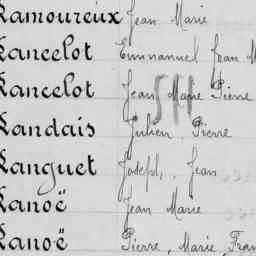 Lamoureux Jean Marie
Lancelot Emmanuel Jean M
Lancelot Jean Marie Pierre
Landais Julien Pierre
Languet Joseph, Jean
Lanoë Jean Marie
Lanoë Pierre, Marie, Fran